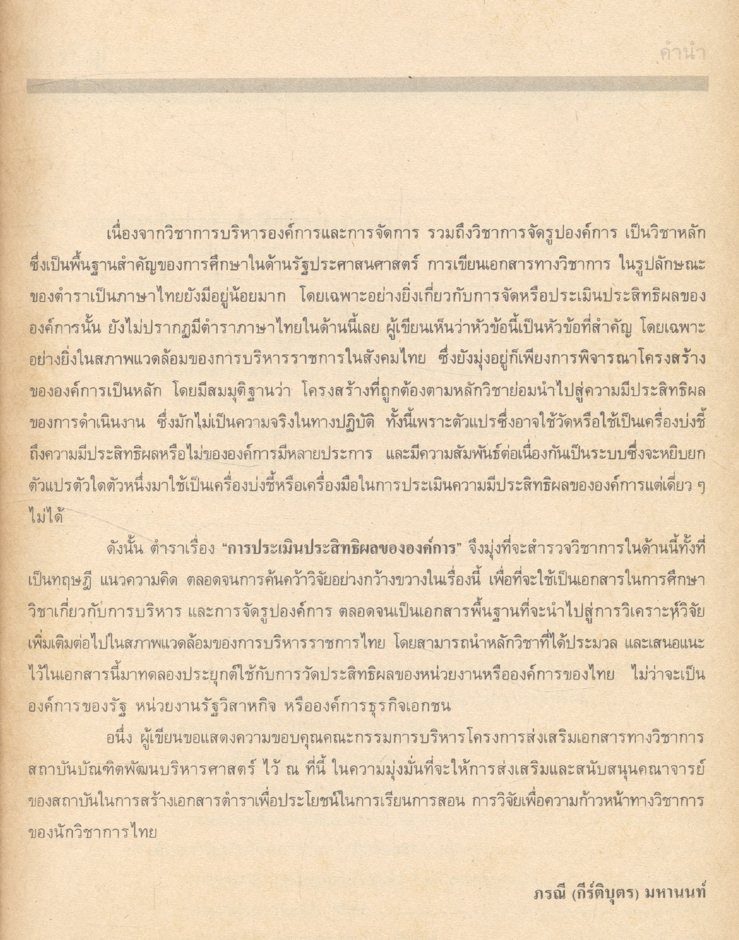 คำนำ
เนื่องจากวิชาการบริหารองค์การและการจัดการ รวมถึงวิชาการจัดรูปองค์การ เป็นวิชาหลัก
ซึ่งเป็นพื้นฐานสำคัญของการศึกษาในด้านรัฐประศาสนศาสตร์ การเขียนเอกสารทางวิชาการ ในรูปลักษณะ
ของตำราเป็นภาษาไทยยังมีอยู่น้อยมาก โดยเฉพาะอย่างยิ่งเกี่ยวกับการจัดหรือประเมินประสิทธิผลของ
องค์การนั้น ยังไม่ปรากฏมีตำราภาษาไทยในด้านนี้เลย ผู้เขียนเห็นว่าหัวข้อนี้เป็นหัวข้อที่สำคัญ โดยเฉพาะ
อย่างยิ่งในสภาพแวดล้อมของการบริหารราชการในสังคมไทย ซึ่งยังมุ่งอยู่ก็เพียงการพิจารณาโครงสร้าง
ขององค์การเป็นหลัก โดยมีสมมุติฐานว่า โครงสร้างที่ถูกต้องตามหลักวิชาย่อมนำไปสู่ความมีประสิทธิผล
ของการดำเนินงาน ซึ่งมักไม่เป็นความจริงในทางปฏิบัติ ทั้งนี้เพราะตัวแปรซึ่งอาจใช้วัดหรือใช้เป็นเครื่องบ่งชี้
ถึงความมีประสิทธิผลหรือไม่ขององค์การมีหลายประการ และมีความสัมพันธ์ต่อเนื่องกันเป็นระบบซึ่งจะหยิบยก
ตัวแปรตัวใดตัวหนึ่งมาใช้เป็นเครื่องบ่งชี้หรือเครื่องมือในการประเมินความมีประสิทธิผลขององค์การแต่เดี่ยว ๆ
ไม่ได้
ดังนั้น ตำราเรื่อง “การประเมินประสิทธิผลขององค์การ” จึงมุ่งที่จะสำรวจวิชาการในด้านนี้ทั้งที่
เป็นทฤษฎี แนวความคิด ตลอดจนการค้นคว้าวิจัยอย่างกว้างขวางในเรื่องนี้ เพื่อที่จะใช้เป็นเอกสารในการศึกษา
วิชาเกี่ยวกับการบริหาร และการจัดรูปองค์การ ตลอดจนเป็นเอกสารพื้นฐานที่จะนำไปสู่การวิเคราะห์วิจัย
เพิ่มเติมต่อไปในสภาพแวดล้อมของการบริหารราชการไทย โดยสามารถนำหลักวิชาที่ได้ประมวล และเสนอแนะ
ไว้ในเอกสารนี้มาทดลองประยุกต์ใช้กับการวัดประสิทธิผลของหน่วยงานหรือองค์การของไทย ไม่ว่าจะเป็น
องค์การของรัฐ หน่วยงานรัฐวิสาหกิจ หรือองค์การธุรกิจเอกชน
อนึ่ง ผู้เขียนขอแสดงความขอบคุณคณะกรรมการบริหารโครงการส่งเสริมเอกสารทางวิชาการ
สถาบันบัณฑิตพัฒนบริหารศาสตร์ ไว้ ณ ที่นี้ ในความมุ่งมั่นที่จะให้การส่งเสริมและสนับสนุนคณาจารย์
ของสถาบันในการสร้างเอกสารตำราเพื่อประโยชน์ในการเรียนการสอน การวิจัยเพื่อความก้าวหน้าทางวิชาการ
ของนักวิชาการไทย
ภรณี (กีร์ติบุตร) มหานนท์